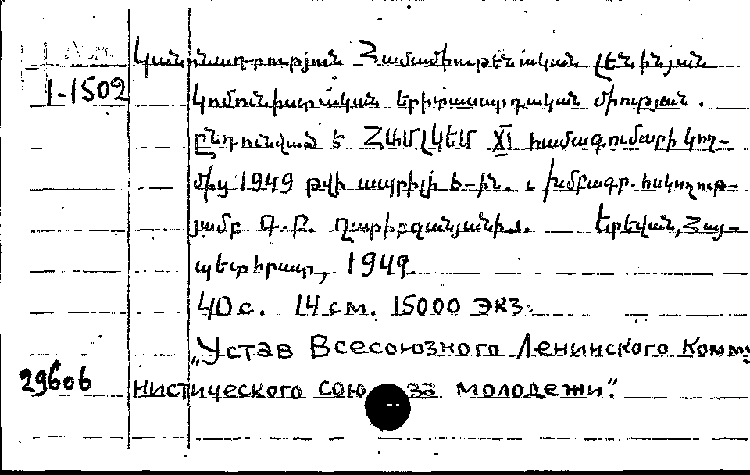 Կանոնադրություն Համամիութենական Լենինյան
1-1509 Կոմունիստական երիտասարդական միության.
ընդունված է ՀԱՄԼԿԵՄ XI համագումարի կող-
մից 1949 թվի ապրիլի 8-ին. խմբագր. հսկողութ-
յամբ Գ. Բ. Ղարիբջանյանի. Երեվան, Հայ-
պետհրատ, 1949
40 с. 14 см. 15000 экз.
„Устав Всесоюзного Ленинского Комму
29606 нистического союза молодежи".